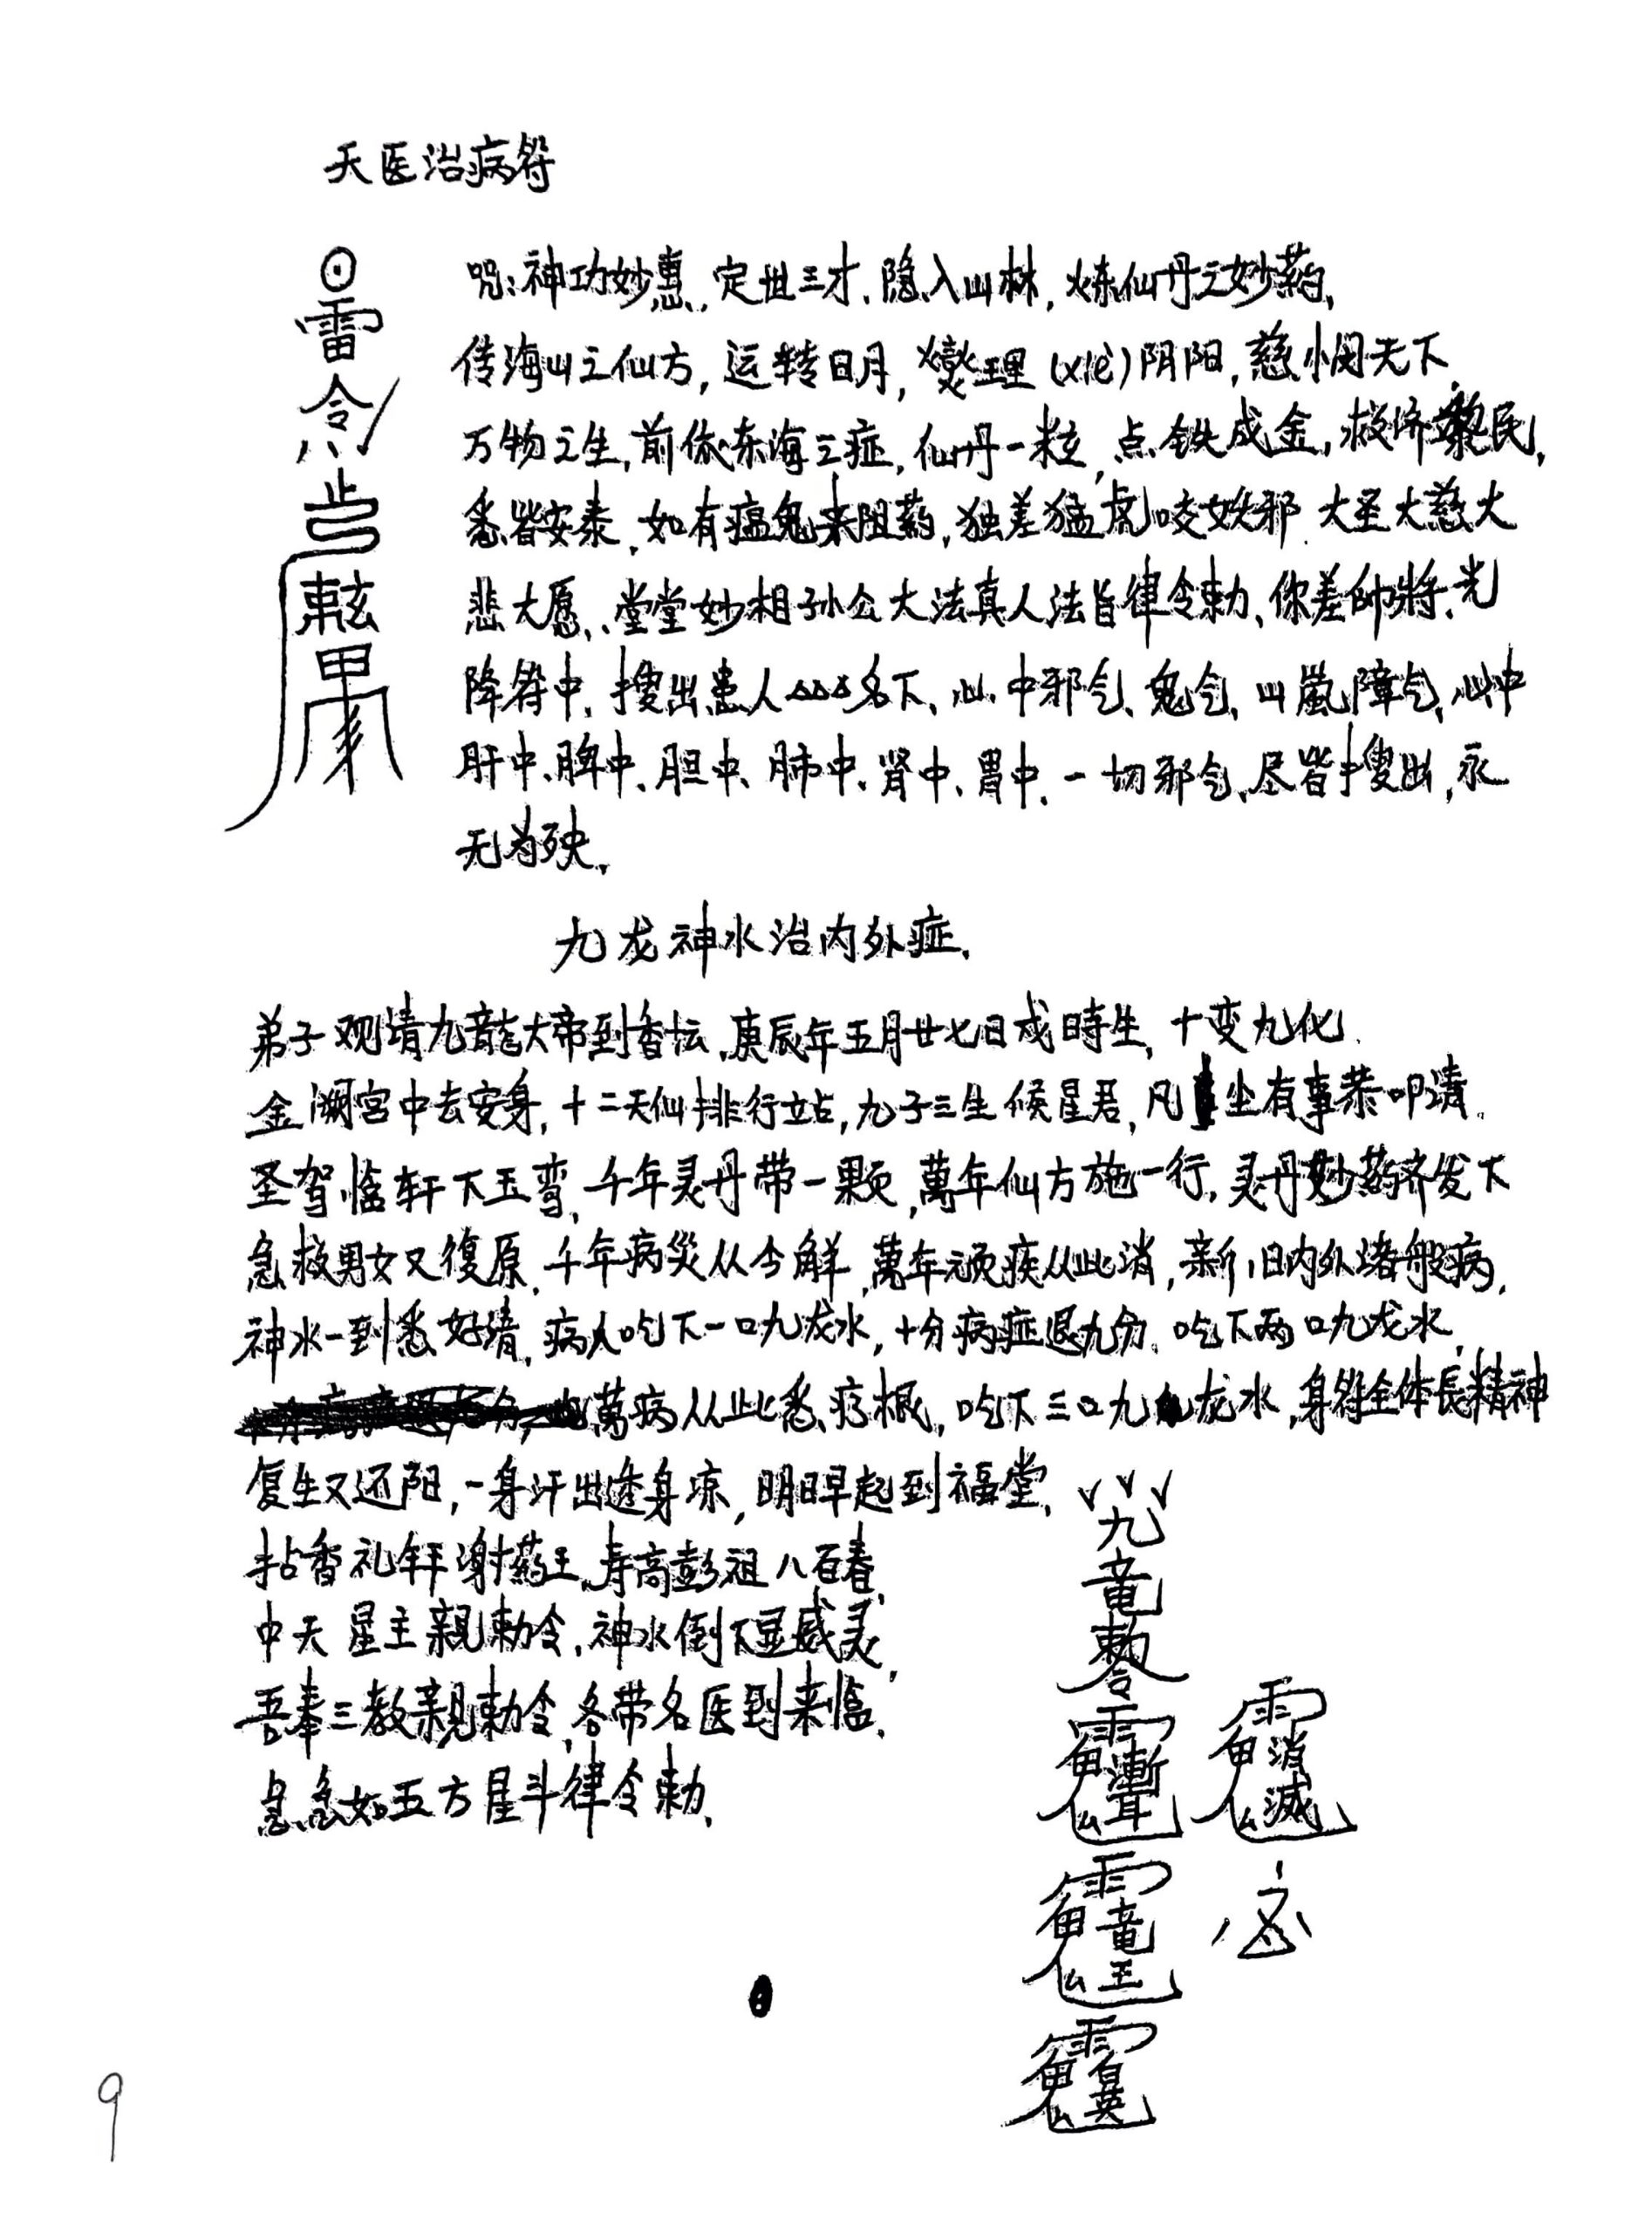 天医治病符
雷
令
咒:神功妙惠,定世三才、隐入山林,炼仙丹之妙药,
传海山之仙方,运转日月,燮理(xiè)阴阳,慈悯天下,
万物之生,前依东海之症,仙丹一粒,点铁成金,救济黎民,
悉皆安泰,如有瘟鬼来阻药,独差猛虎咬妖邪.大圣大慈大
悲大愿、堂堂妙相孙公大法真人法旨律令勅、你差帅將、光
降符中、搜出患人△△△名下、心中邪气、鬼气、山嵐障气、心中
肝中、脾中、胆中、肺中、肾中、胃中、一切邪气、尽皆搜出,永
无为殃。
九龙神水治内外症.
弟子观请九龍大帝到香坛,庚辰年五月廿七日戍時生,十变九化.
金湖宫中去安身,十二天仙排行立站,九子三生候星君,凡坐有事恭叩请。
圣驾临轩下玉弯,千年灵丹带一颗,萬年仙方施一行,灵丹妙药齐发下
急救男女又復原,千年病災从今解,萬年顽疾从此消,新旧内外诸般病,
神水一到悉好清,病人吃下一口九龙水,十分病症退九分、吃下两口九龙水,
萬病从此悉疗根,吃下三口九龙水,身符全体長精神
復生又还阳,一身汗出透身凉,明日早起到福堂、
拈香礼轩谢药王,寿高彭祖八百春,
中天星主親勅令,神水倒下显威灵,
吾奉三教親勅令,各带名医到来临、
急急如五方星斗律令勅、
九
竜
勅令
消滅
竜王
9